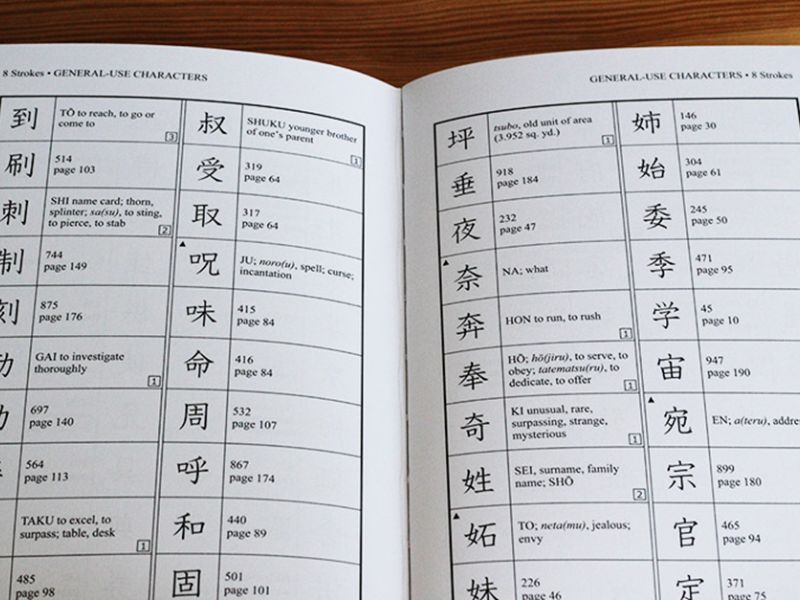 8 Strokes • GENERAL-USE CHARACTERS
到
TŌ to reach, to go or
come to
3
刷
514
page 103
刺
SHI name card; thorn,
splinter; sa(su), to sting,
to pierce, to stab
2
制
744
page 149
刻
875
page 176
GAI to investigate
thoroughly
1
697
page 140
564
page 113
TAKU to excel, to
surpass; table, desk
1
485
page 98
叔
SHUKU younger brother
of one's parent
1
受
319
page 64
取
317
page 64
▲
呪
JU; noro(u), spell; curse;
incantation
味
415
page 84
命
416
page 84
周
532
page 107
呼
867
page 174
和
440
page 89
固
501
page 101
GENERAL-USE CHARACTERS • 8 Strokes
坪
tsubo, old unit of area
(3.952 sq. yd.)
1
垂
918
page 184
夜
232
page 47
▲
奈
NA; what
奔
HON to run, to rush
1
奉
HŌ; hō(jiru), to serve, to
obey; tatematsu(ru), to
dedicate, to offer
1
奇
KI unusual, rare,
surpassing, strange,
mysterious
1
姓
SEI, surname, family
name; SHŌ
2
▲
妬
TO; neta(mu), jealous;
envy
妹
226
page 46
姉
146
page 30
始
304
page 61
委
245
page 50
季
471
page 95
学
45
page 10
宙
947
page 190
▲
宛
EN; a(teru), addre
宗
899
page 180
官
465
page 94
定
371
page 75